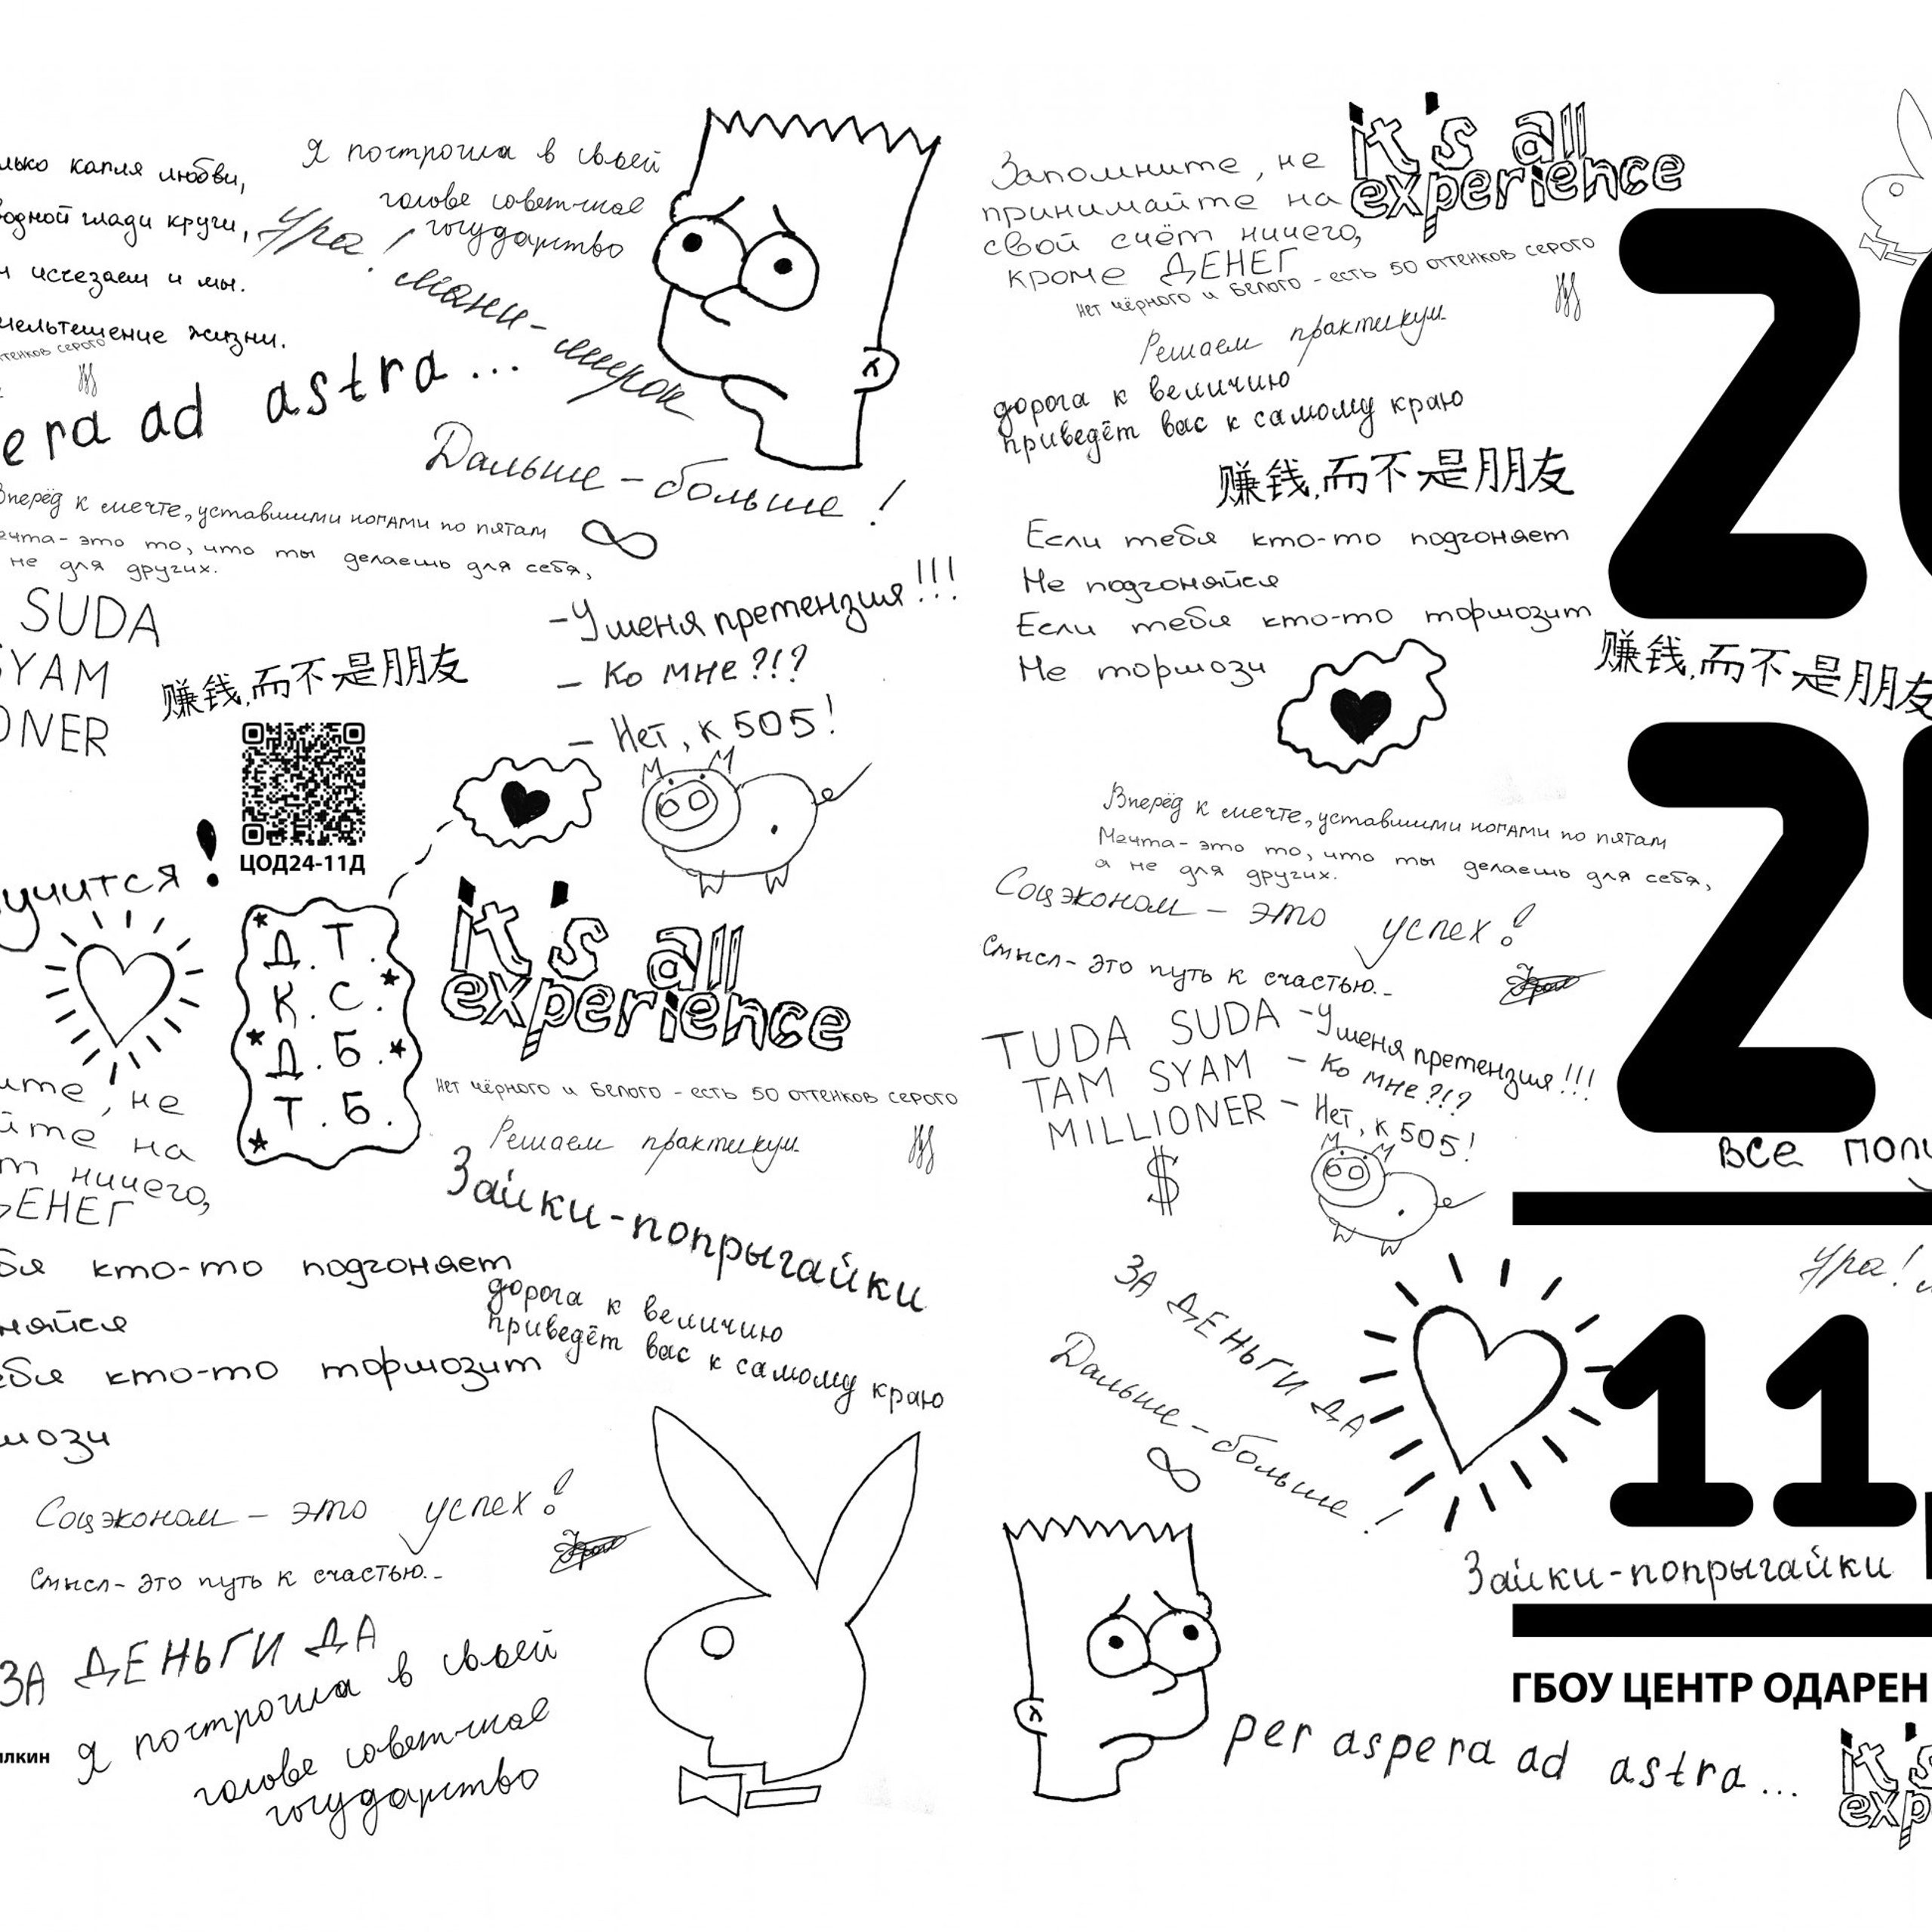 капля любви,
глади круги,
исчезаем и мы.
жизни.
оттенков серого
ad astra...
Я построила в своей
голове советское
государство
Ура! мани-
Дальше - больше!
Вперёд к мечте, уставшими ногами по пятам
Мечта - это то, что ты делаешь для себя,
не для других.
SUDA
SYAM
赚钱,而不是朋友
-У меня претензия!!!
- Ко мне?!?
- Нет, к 505!
ЦОД24-11Д
Д.Т.
К.С.
Д.Б.
Т.Б.
it's all
experience
Нет чёрного и белого - есть 50 оттенков серого
Решаем практикум
Зайки-попрыгайки
не
на
ничего,
ДЕНЕГ
кто-то подгоняет
кто-то тормозит
дорога к величию
приведёт вас к самому краю
Соцэконом - это успех!
Смысл - это путь к счастью...
ЗА ДЕНЬГИ ДА
Я построила в своей
голове советское
государство
Запомните, не
принимайте на
свой счёт ничего,
кроме ДЕНЕГ
it's all
experience
Нет чёрного и белого - есть 50 оттенков серого
Решаем практикум
дорога к величию
приведёт вас к самому краю
赚钱,而不是朋友
Если тебя кто-то подгоняет
Не подгоняйся
Если тебя кто-то тормозит
Не тормози
20
赚钱,而不是朋友
2
Вперёд к мечте, уставшими ногами по пятам
Мечта - это то, что ты делаешь для себя,
а не для других.
Соцэконом - это успех!
Смысл - это путь к счастью...
TUDA SUDA
TAM SYAM
MILLIONER
$
-У меня претензия!!!
- Ко мне?!?
- Нет, к 505!
все
Ура!
ЗА ДЕНЬГИ ДА
Дальше - больше!
11
Зайки-попрыгайки
ГБОУ ЦЕНТР ОДАРЕН
per aspera ad astra...
it's
exp